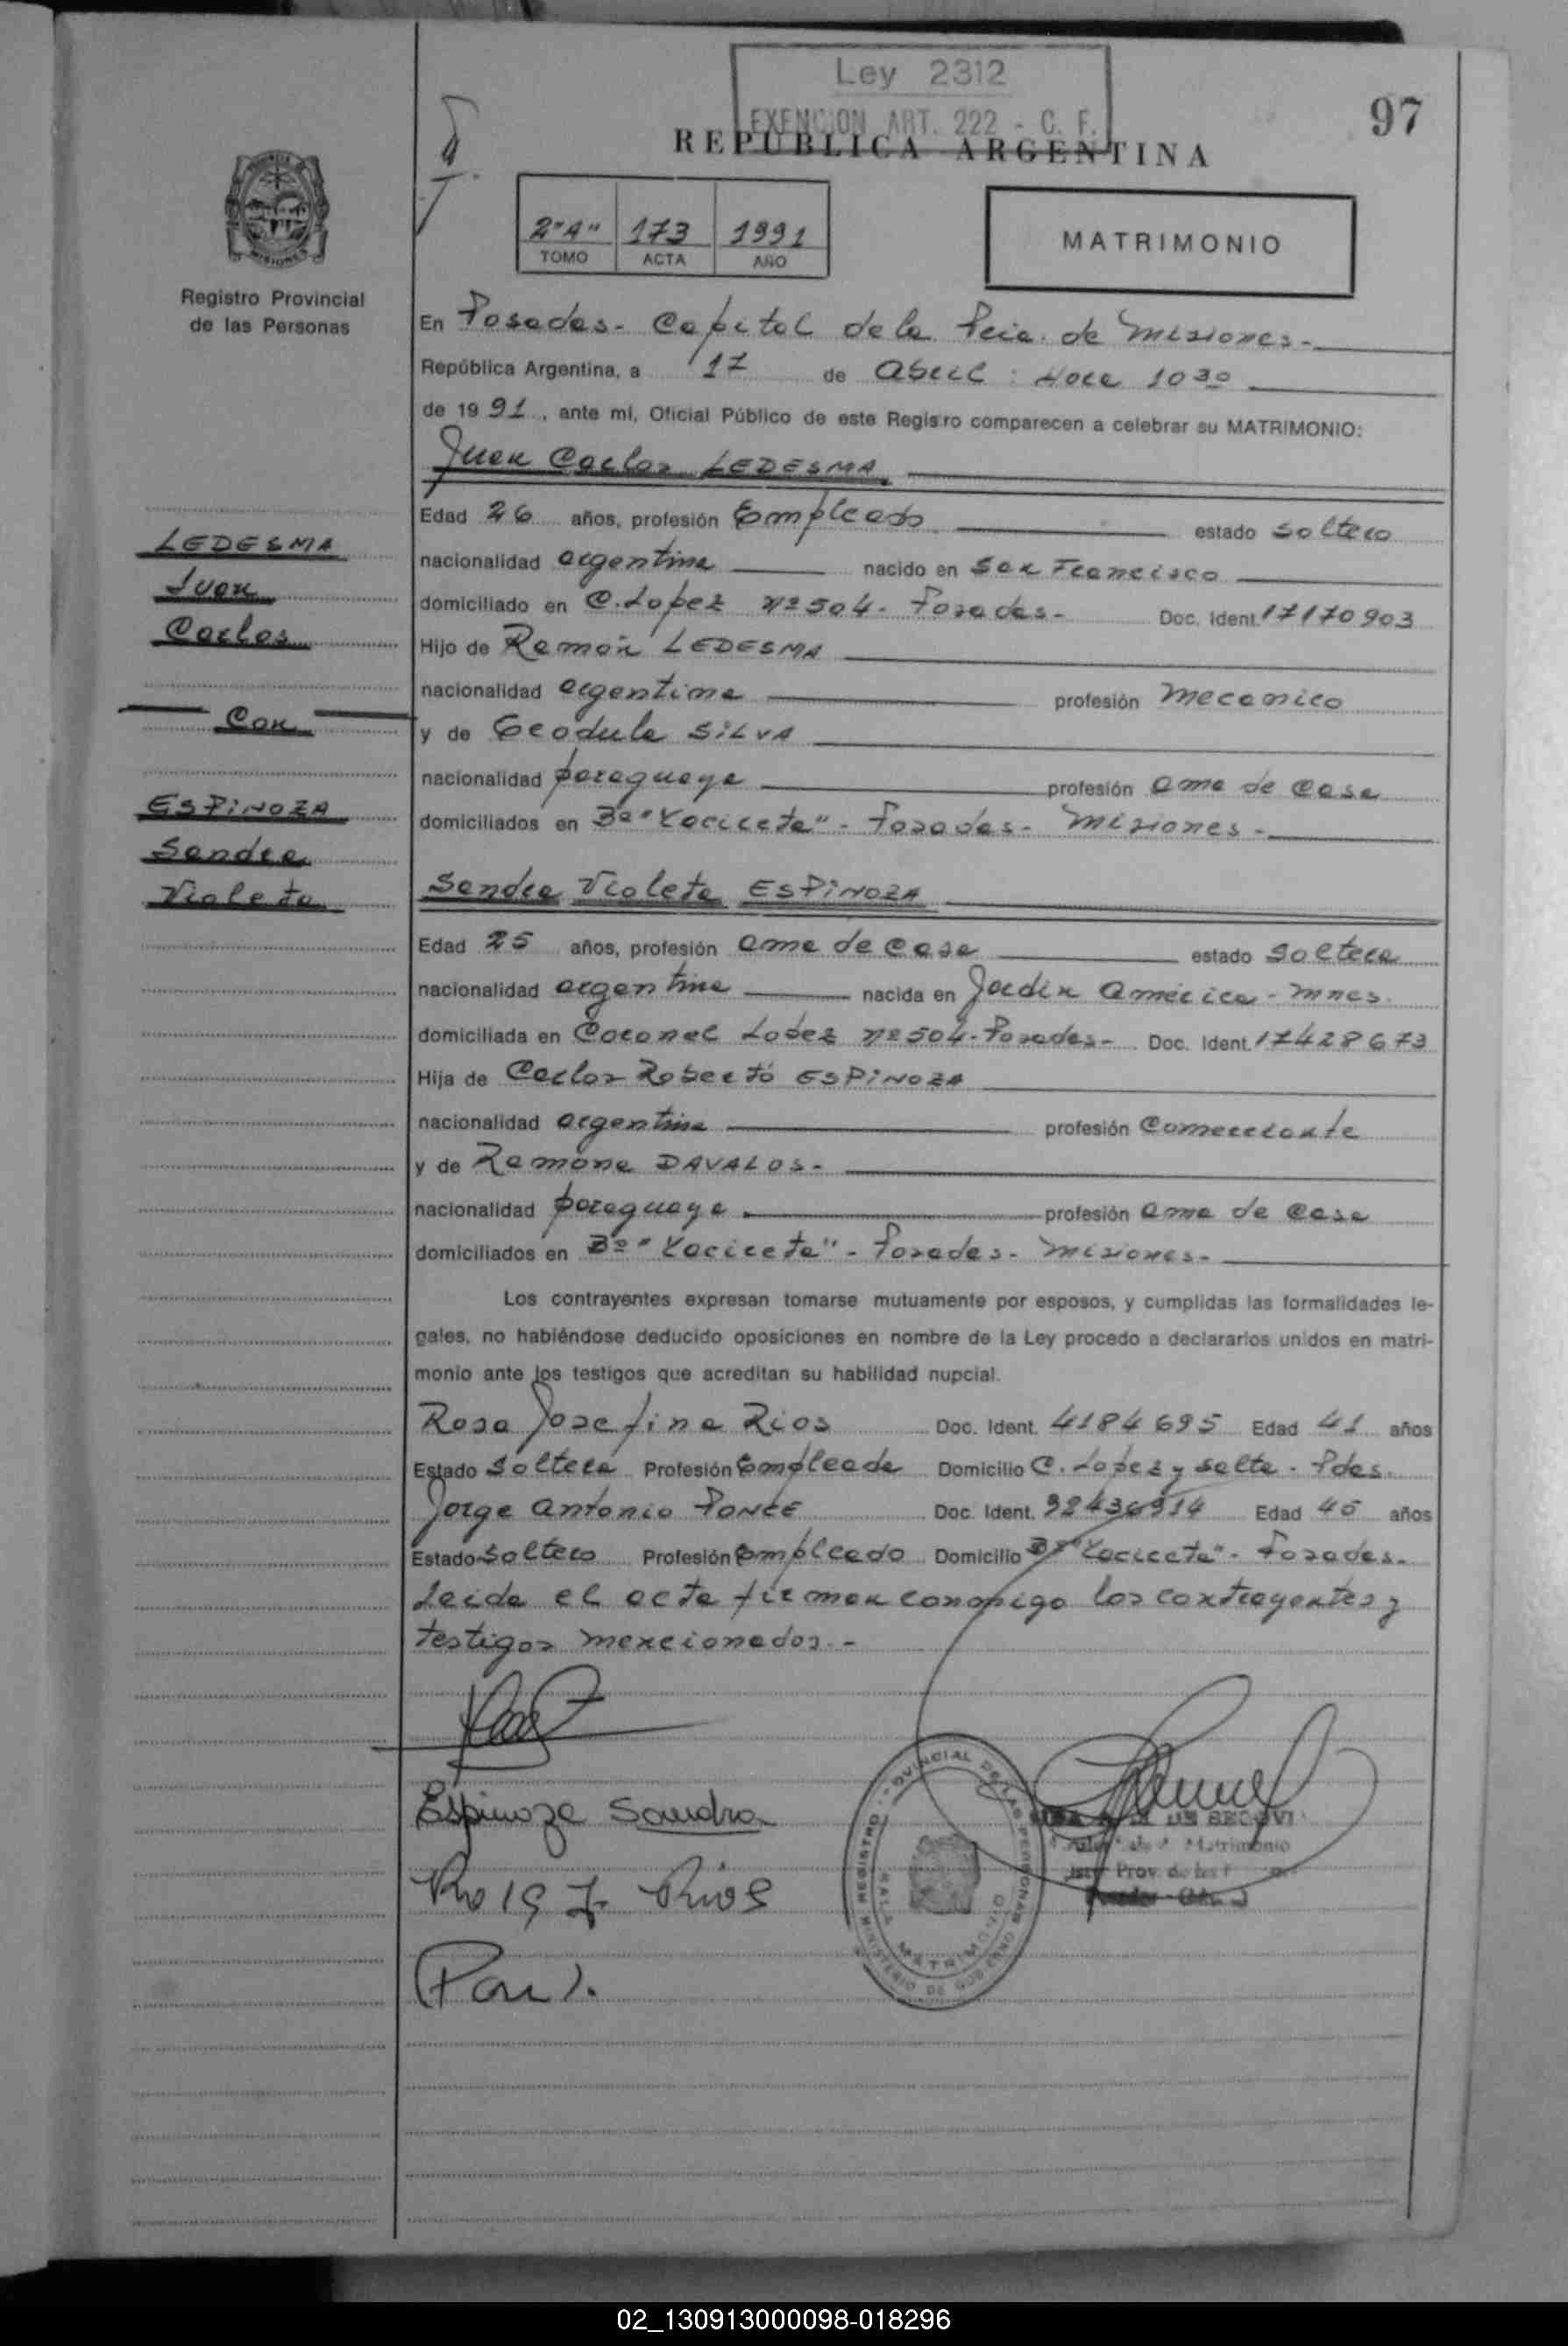 Ley 2312
EXENCION ART. 222 - C. F.
97
REPUBLICA ARGENTINA
2"A" 173 1991
TOMO ACTA AÑO
MATRIMONIO
MISIONES
Registro Provincial
de las Personas
En Posadas - Capital de la Pcia. de Misiones.-
República Argentina, a 17 de Abril : Hora 10 30
de 19 91, ante mí, Oficial Público de este Registro comparecen a celebrar su MATRIMONIO:
Juan Carlos LEDESMA
Edad 26 años, profesión Empleado estado soltero
LEDESMA
Juan
Carlos
Con
ESPINOZA
Sandra
Violeta
nacionalidad argentina nacido en San Francisco
domiciliado en C. Lopez Nº 504 - Posadas - Doc. Ident. 17170903
Hijo de Ramón LEDESMA
nacionalidad argentina profesión Mecanico
y de Teodula SILVA
nacionalidad paraguaya profesión ama de casa
domiciliados en Bº "Yacireta" - Posadas - Misiones -
Sandra Violeta ESPINOZA
Edad 25 años, profesión ama de casa estado soltera
nacionalidad argentina nacida en Jardin América - Mnes.
domiciliada en Coronel Lopez Nº 504 - Posadas - Doc. Ident. 17428673
Hija de Carlos Roberto ESPINOZA
nacionalidad argentina profesión Comerciante
y de Ramona DAVALOS -
nacionalidad paraguaya profesión ama de casa
domiciliados en Bº "Yacireta" - Posadas - Misiones -
Los contrayentes expresan tomarse mutuamente por esposos, y cumplidas las formalidades le-
gales, no habiéndose deducido oposiciones en nombre de la Ley procedo a declararlos unidos en matri-
monio ante los testigos que acreditan su habilidad nupcial.
Rosa Josefina Rios Doc. Ident. 4184695 Edad 41 años
Estado Soltera Profesión Empleada Domicilio C. Lopez y Salta - Pdas.
Jorge Antonio PONCE Doc. Ident. 92436914 Edad 45 años
Estado Soltero Profesión Empleado Domicilio Bº "Yacireta" - Posadas -
Leida el acta firman conmigo los contrayentes y
testigos mencionados. -
Espinoza Sandra
Rosa J. Rios
REGISTRO PROVINCIAL DE LAS PERSONAS
MATRIMONIO
MINISTERIO DE GOBIERNO
02_130913000098-018296